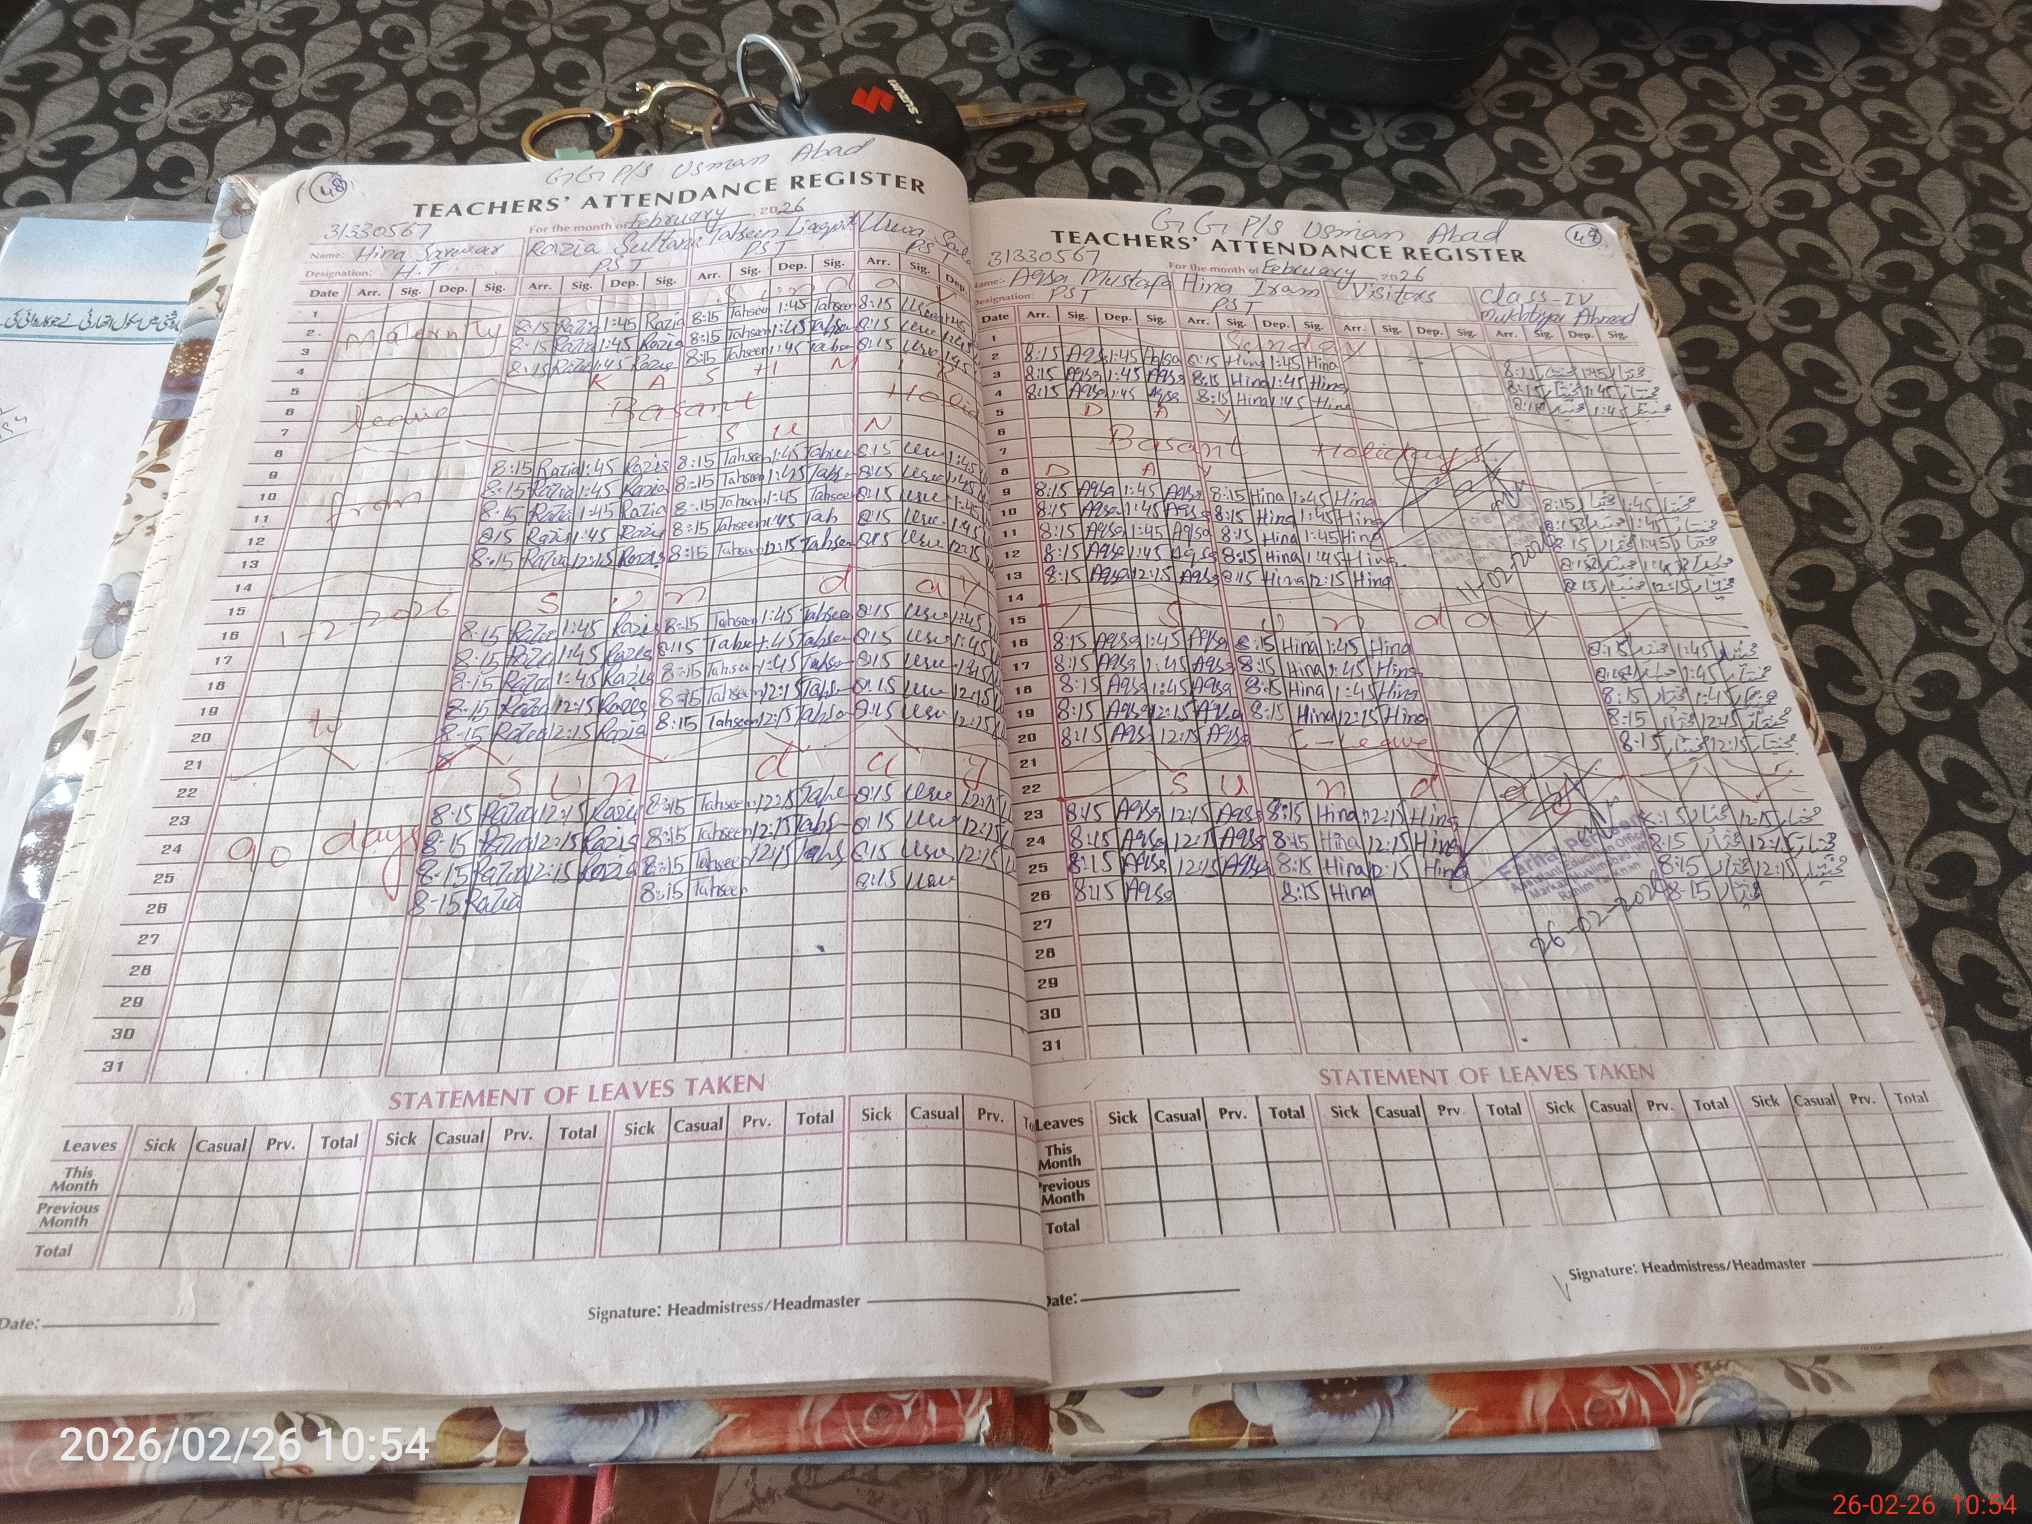 48
GGP/S Usman Abad
TEACHERS' ATTENDANCE REGISTER
31330567
For the month of February 2026
Name: Hina Sarwar Razia Sultana Tahseen Liaqat
Designation: H.T PST PST PST
Date Arr. Sig. Dep. Sig. Arr. Sig. Dep. Sig. Arr. Sig. Dep. Sig. Arr. Sig. Dep.
1 Sunday
2 Maternity 8:15 Razia 1:45 Razia 8:15 Tahseen 1:45 Tahseen 8:15
3 8:15 Razia 1:45 Razia 8:15 Tahseen 1:45 8:15
4 8:15 Razia 1:45 Razia 8:15 Tahseen 1:45 8:15
5 K A S H M I R
6 leave Basant
7
8 S U N
9 8:15 Razia 1:45 Razia 8:15 Tahseen 1:45 8:15 1:45
10 from 8:15 Razia 1:45 Razia 8:15 Tahseen 1:45 8:15 1:45
11 8:15 Razia 1:45 Razia 8:15 Tahseen 1:45 Tahseen 8:15 1:45
12 8:15 Razia 1:45 Razia 8:15 Tahseen 1:45 Tah 8:15 1:45
13 8:15 Razia 12:15 Razia 8:15 Tahseen 12:15 Tahseen 8:15 12:15
14
15 1-2-2026 S u n d a y
16 8:15 Razia 1:45 Razia 8:15 Tahseen 1:45 Tahseen 8:15 1:45
17 8:15 Razia 1:45 Razia 8:15 1:45 Tahseen 8:15 1:45
18 8:15 Razia 1:45 Razia 8:15 Tahseen 1:45 8:15 1:45
19 8:15 Razia 12:15 Razia 8:15 Tahseen 12:15 8:15 12:15
20 to 8:15 Razia 12:15 Razia 8:15 Tahseen 12:15 8:15 12:15
21
22 S u n d a y
23 8:15 Razia 12:15 Razia 8:15 Tahseen 12:15 8:15 12:15
24 90 days 8:15 Razia 12:15 Razia 8:15 Tahseen 12:15 8:15 12:15
25 8:15 Razia 12:15 Razia 8:15 Tahseen 12:15 8:15 12:15
26 8:15 Razia 8:15 Tahseen 8:15
27
28
29
30
31
STATEMENT OF LEAVES TAKEN
Leaves Sick Casual Prv. Total Sick Casual Prv. Total Sick Casual Prv. Total Sick Casual Prv.
This Month
Previous Month
Total
Signature: Headmistress/Headmaster
Date:
GGP/S Usman Abad
48
TEACHERS' ATTENDANCE REGISTER
31330567
For the month of February 2026
Name:- Aqsa Mustafa Hina Iram Visitors Class-IV
Designation: PST PST Mukhtiyar Ahmad
Date Arr. Sig. Dep. Sig. Arr. Sig. Dep. Sig. Arr. Sig. Dep. Sig. Arr. Sig. Dep. Sig.
1 Sunday
2 8:15 Aqsa 1:45 Aqsa 8:15 Hina 1:45 Hina 8:15 مختار 1:45 مختار
3 8:15 Aqsa 1:45 Aqsa 8:15 Hina 1:45 Hina 8:15 مختار 1:45 مختار
4 8:15 Aqsa 1:45 Aqsa 8:15 Hina 1:45 Hina 8:15 مختار 1:45 مختار
5 D A Y
6 Basant Holidays
7
8 D A Y
9 8:15 Aqsa 1:45 Aqsa 8:15 Hina 1:45 Hina 8:15 مختار 1:45 مختار
10 8:15 Aqsa 1:45 Aqsa 8:15 Hina 1:45 Hina 8:15 مختار 1:45 مختار
11 8:15 Aqsa 1:45 Aqsa 8:15 Hina 1:45 Hina 8:15 مختار 1:45 مختار
12 8:15 Aqsa 1:45 Aqsa 8:15 Hina 1:45 Hina 8:15 مختار 1:45 مختار
13 8:15 Aqsa 12:15 Aqsa 8:15 Hina 12:15 Hina 8:15 مختار 12:15 مختار
11-02-2026
14
15 S u n d a y
16 8:15 Aqsa 1:45 Aqsa 8:15 Hina 1:45 Hina 8:15 مختار 1:45 مختار
17 8:15 Aqsa 1:45 Aqsa 8:15 Hina 1:45 Hina 8:15 مختار 1:45 مختار
18 8:15 Aqsa 1:45 Aqsa 8:15 Hina 1:45 Hina 8:15 مختار 1:45 مختار
19 8:15 Aqsa 12:15 Aqsa 8:15 Hina 12:15 Hina 8:15 مختار 12:15 مختار
20 8:15 Aqsa 12:15 Aqsa C-Leave 8:15 مختار 12:15 مختار
21
22 S u n d a y
23 8:15 Aqsa 12:15 Aqsa 8:15 Hina 12:15 Hina 8:15 مختار 12:15 مختار
24 8:15 Aqsa 12:15 Aqsa 8:15 Hina 12:15 Hina 8:15 مختار 12:15 مختار
25 8:15 Aqsa 12:15 Aqsa 8:15 Hina 12:15 Hina 8:15 مختار 12:15 مختار
26 8:15 Aqsa 8:15 Hina 8:15 مختار
Education Officer
26-02-2026
27
28
29
30
31
STATEMENT OF LEAVES TAKEN
Leaves Sick Casual Prv. Total Sick Casual Prv. Total Sick Casual Prv. Total Sick Casual Prv. Total
This Month
Previous Month
Total
Signature: Headmistress/Headmaster
Date:
SUZUKI
2026/02/26 10:54
26-02-26 10:54